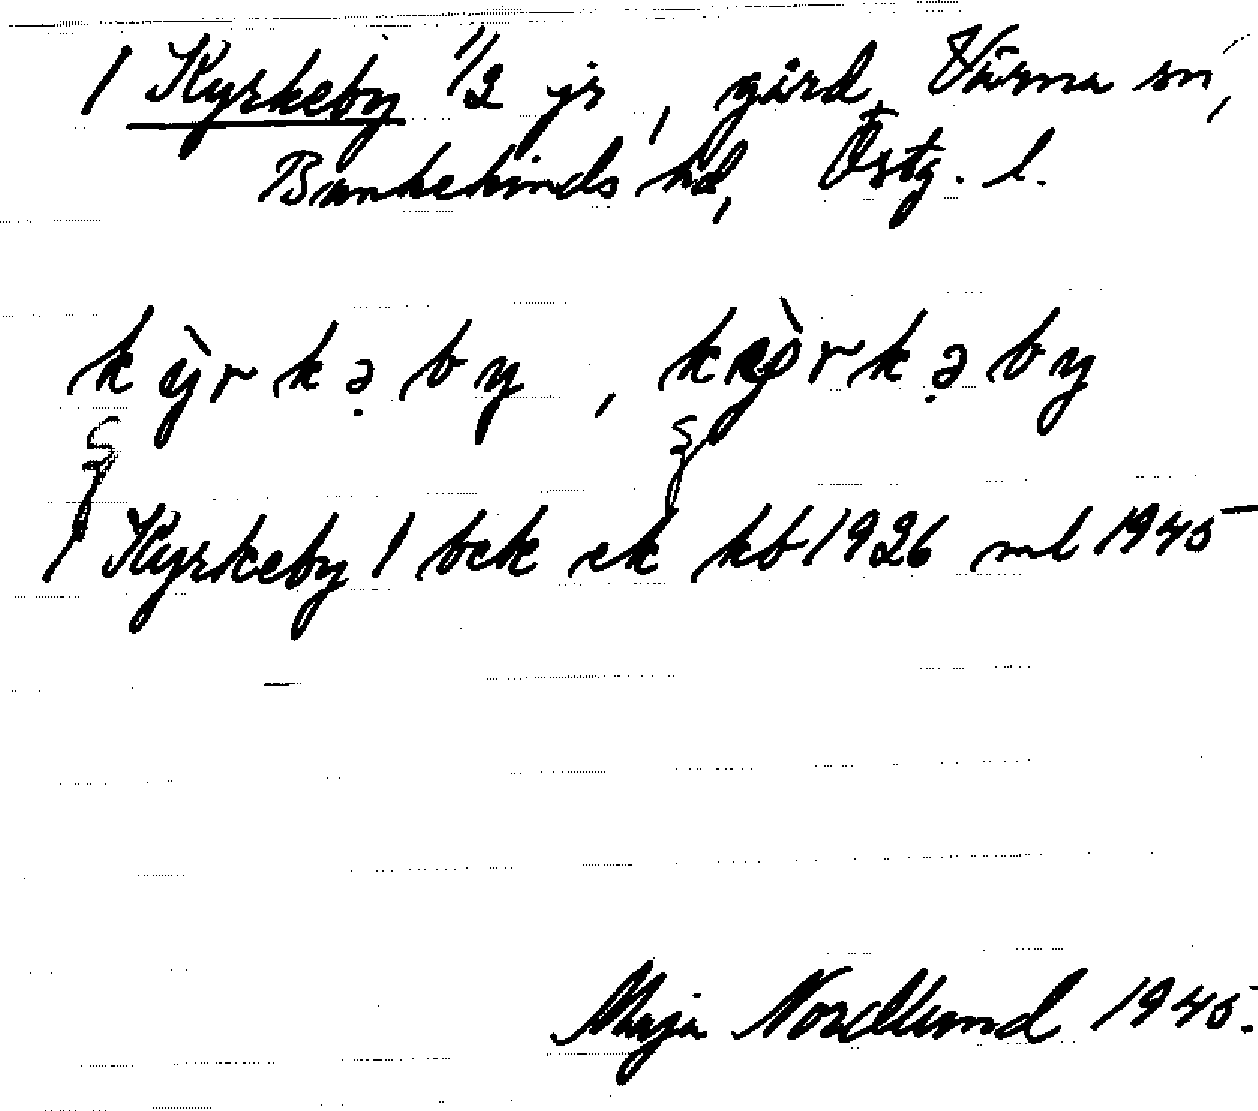 / Kyrkeby 1/2 jr, gård, Värna sn,
Bankekinds hd, Östg. l.
kỳrkə̣by, kø̀rkə̣by
/ Kyrkeby / bek ek kb 1926 ml 1945
Maja Nordlund 1945.